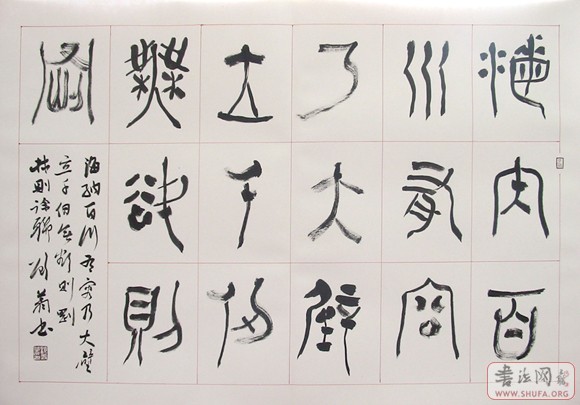 海内百
川有容
乃大壁
立千仞
無欲則
剛
海纳百川有容乃大壁
立千仞無欲则刚
林则徐联 书
书法网
WWW.SHUFA.ORG